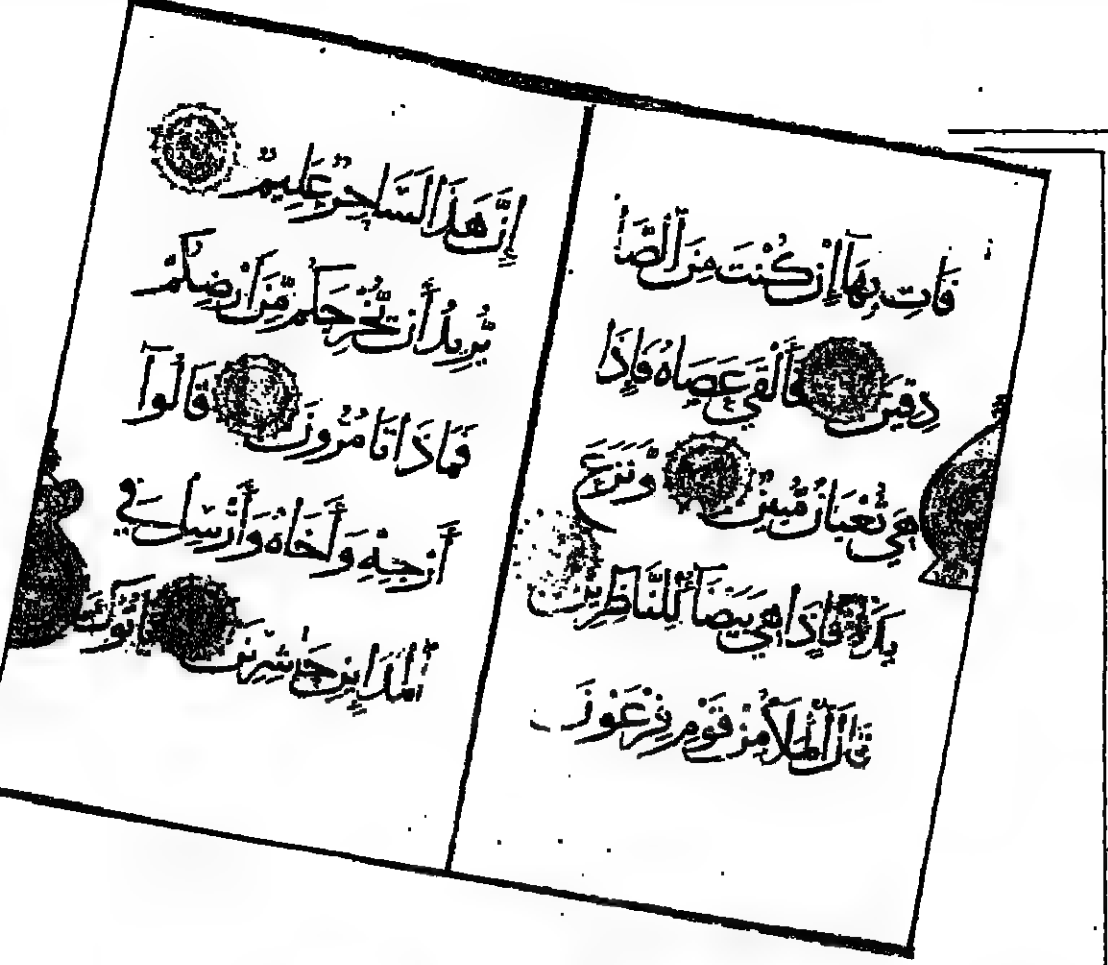 فَأْتِ بِهَآ إِنْ كُنْتَ مِنَ الصَّا
دِقِينَ فَأَلْقَى عَصَاهُ فَإِذَا
هِيَ ثُعْبَانٌ مُّبِينٌ وَّنَزَعَ
يَدَهُ فَإِذَا هِيَ بَيْضَآءُ لِلنَّاظِرِينَ
قَالَ الْمَلَأُ مِنْ قَوْمِ فِرْعَوْنَ
إِنَّ هَذَا لَسَاحِرٌ عَلِيمٌ
يُّرِيدُ أَنْ يُّخْرِجَكُمْ مِّنْ أَرْضِكُمْ
فَمَاذَا تَأْمُرُونَ قَالُوآ
أَرْجِهْ وَأَخَاهُ وَأَرْسِلْ فِي
الْمَدَآئِنِ حَاشِرِينَ يَأْتُوكَ